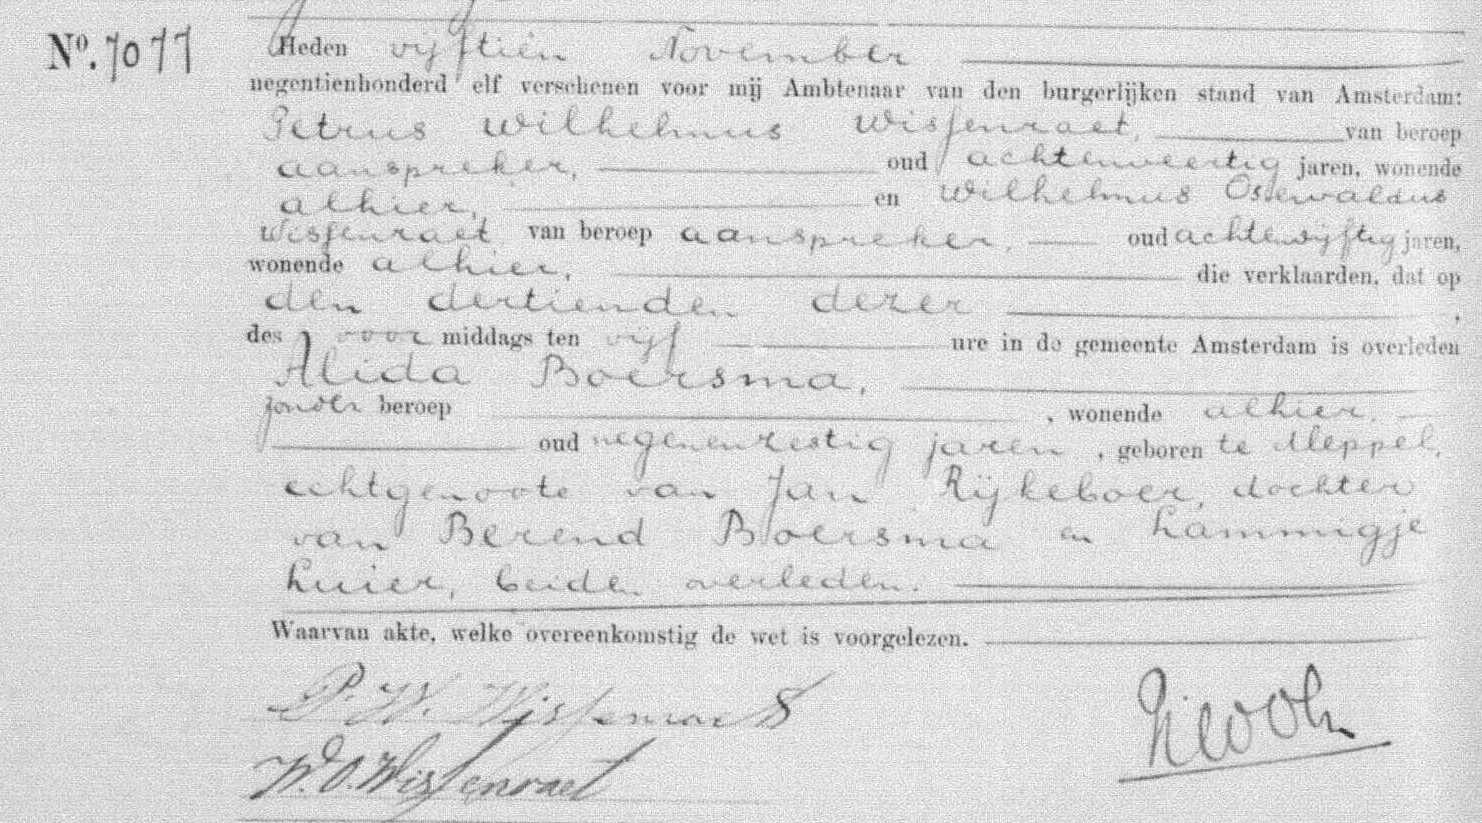 Nº. 7077
Heden vijftien November
negentienhonderd elf verschenen voor mij Ambtenaar van den burgerlijken stand van Amsterdam:
Petrus Wilhelmus Wissenraet, van beroep
aanspreker, oud achtenveertig jaren, wonende
alhier, en Wilhelmus Oswaldus
Wissenraet van beroep aanspreker, oud achtenvijftig jaren,
wonende alhier, die verklaarden, dat op
den dertienden dezer ,
des voor middags ten vijf ure in de gemeente Amsterdam is overleden
Alida Boersma,
zonder beroep , wonende alhier,
oud negenenzestig jaren , geboren te Meppel,
echtgenoote van Jan Rijkeboer, dochter
van Berend Boersma en Lammigje
Luier, beiden overleden.
Waarvan akte, welke overeenkomstig de wet is voorgelezen.
P. W. Wissenraet
W. O. Wissenraet